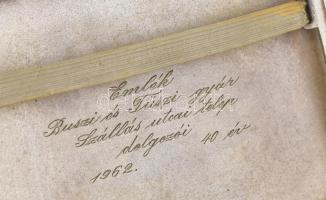 Emlék
Buszi és Füszi gyár
Szállás utcai telep
dolgozói 40 év
1962.